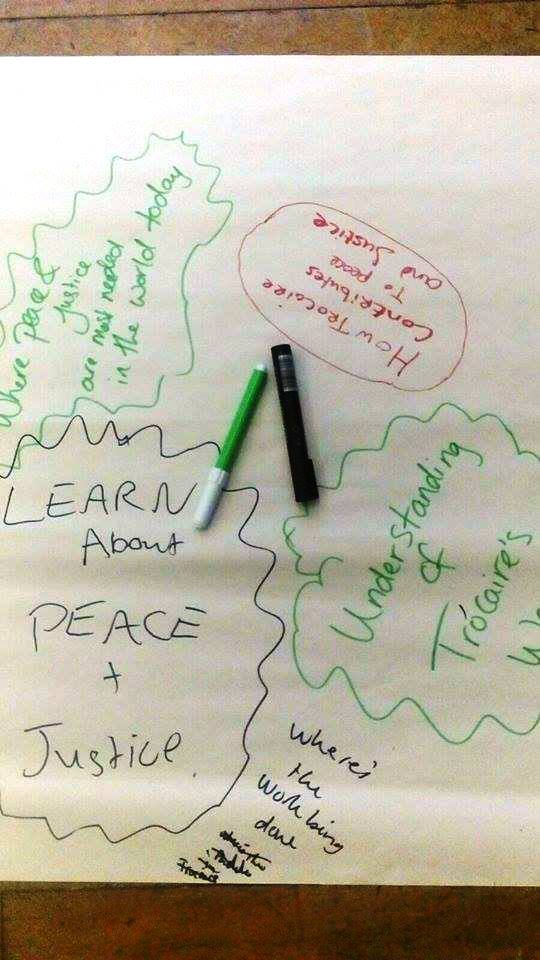 Where peace &
justice
are most needed
in the world today
How Trocaire
Contributes
To peace
and Justice
LEARN
About
PEACE
+
Justice
Understanding
of
Trócaire's
Where's
the
work being
done